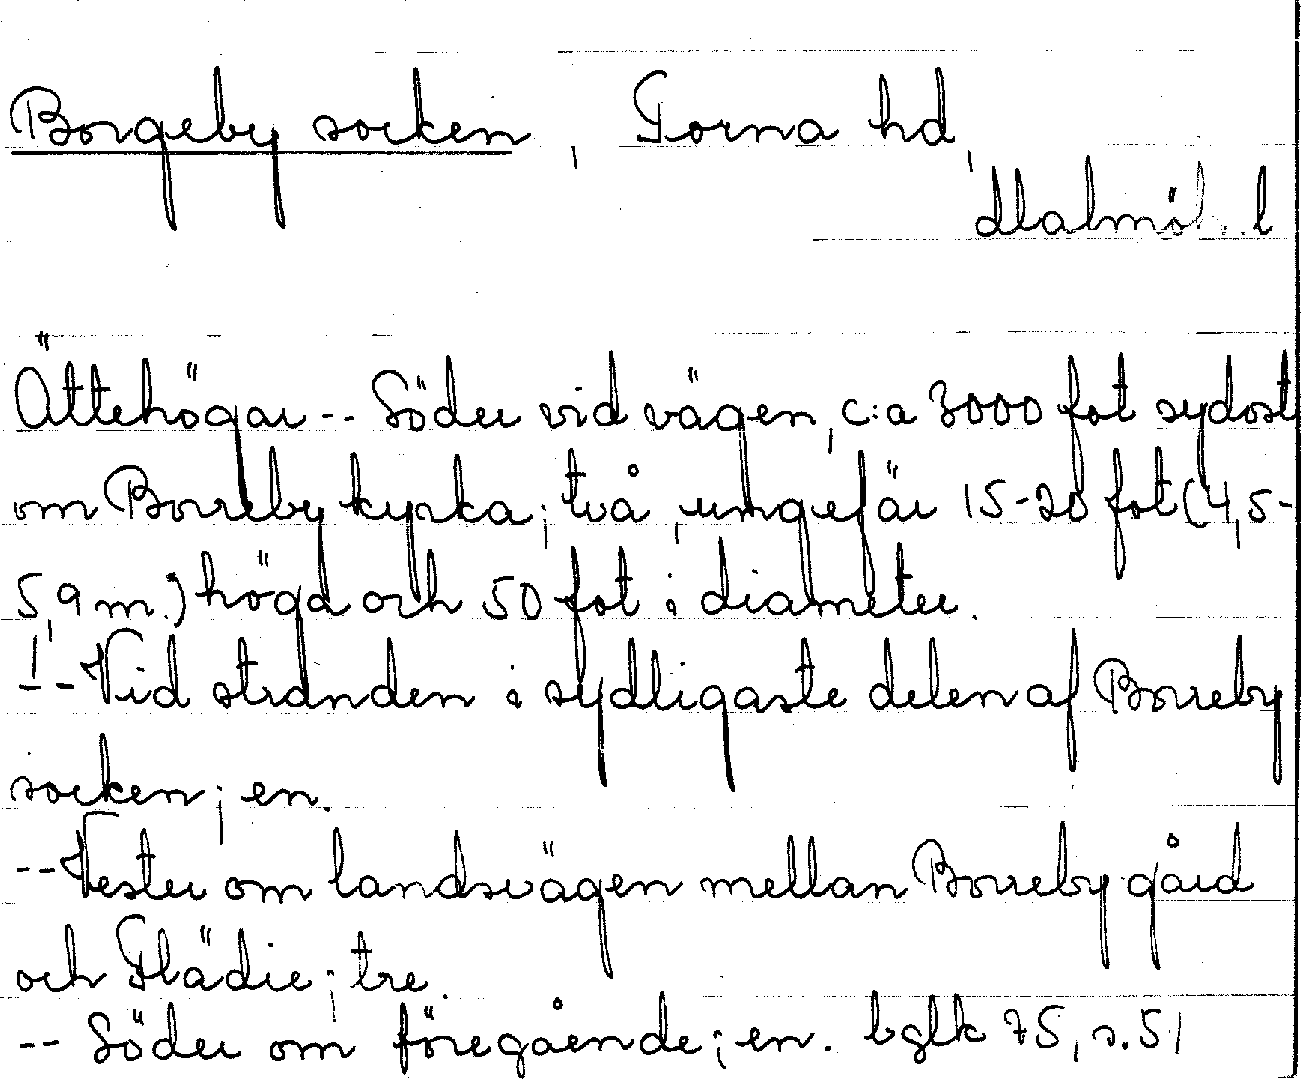 Borgeby socken, Torna hd,
Malmöh. l
Ättehögar -- Söder vid vägen, c:a 3000 fot sydost
om Borreby kyrka; två, ungefär 15-20 fot (4,5-
5,9 m.) högd och 50 fot i diameter.
-- Vid stranden i sydligaste delen af Borreby
socken; en.
-- Vester om landsvägen mellan Borreby gård
och Flädie; tre.
-- Söder om föregående; en. bglk 75, s. 51